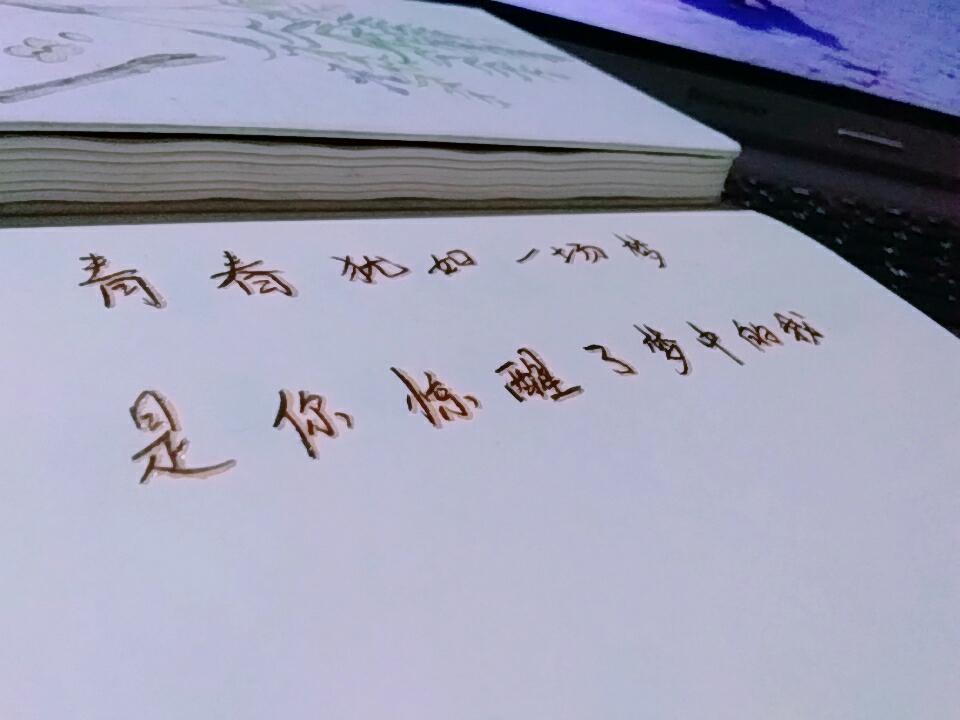 青春犹如一场梦
是你惊醒了梦中的我